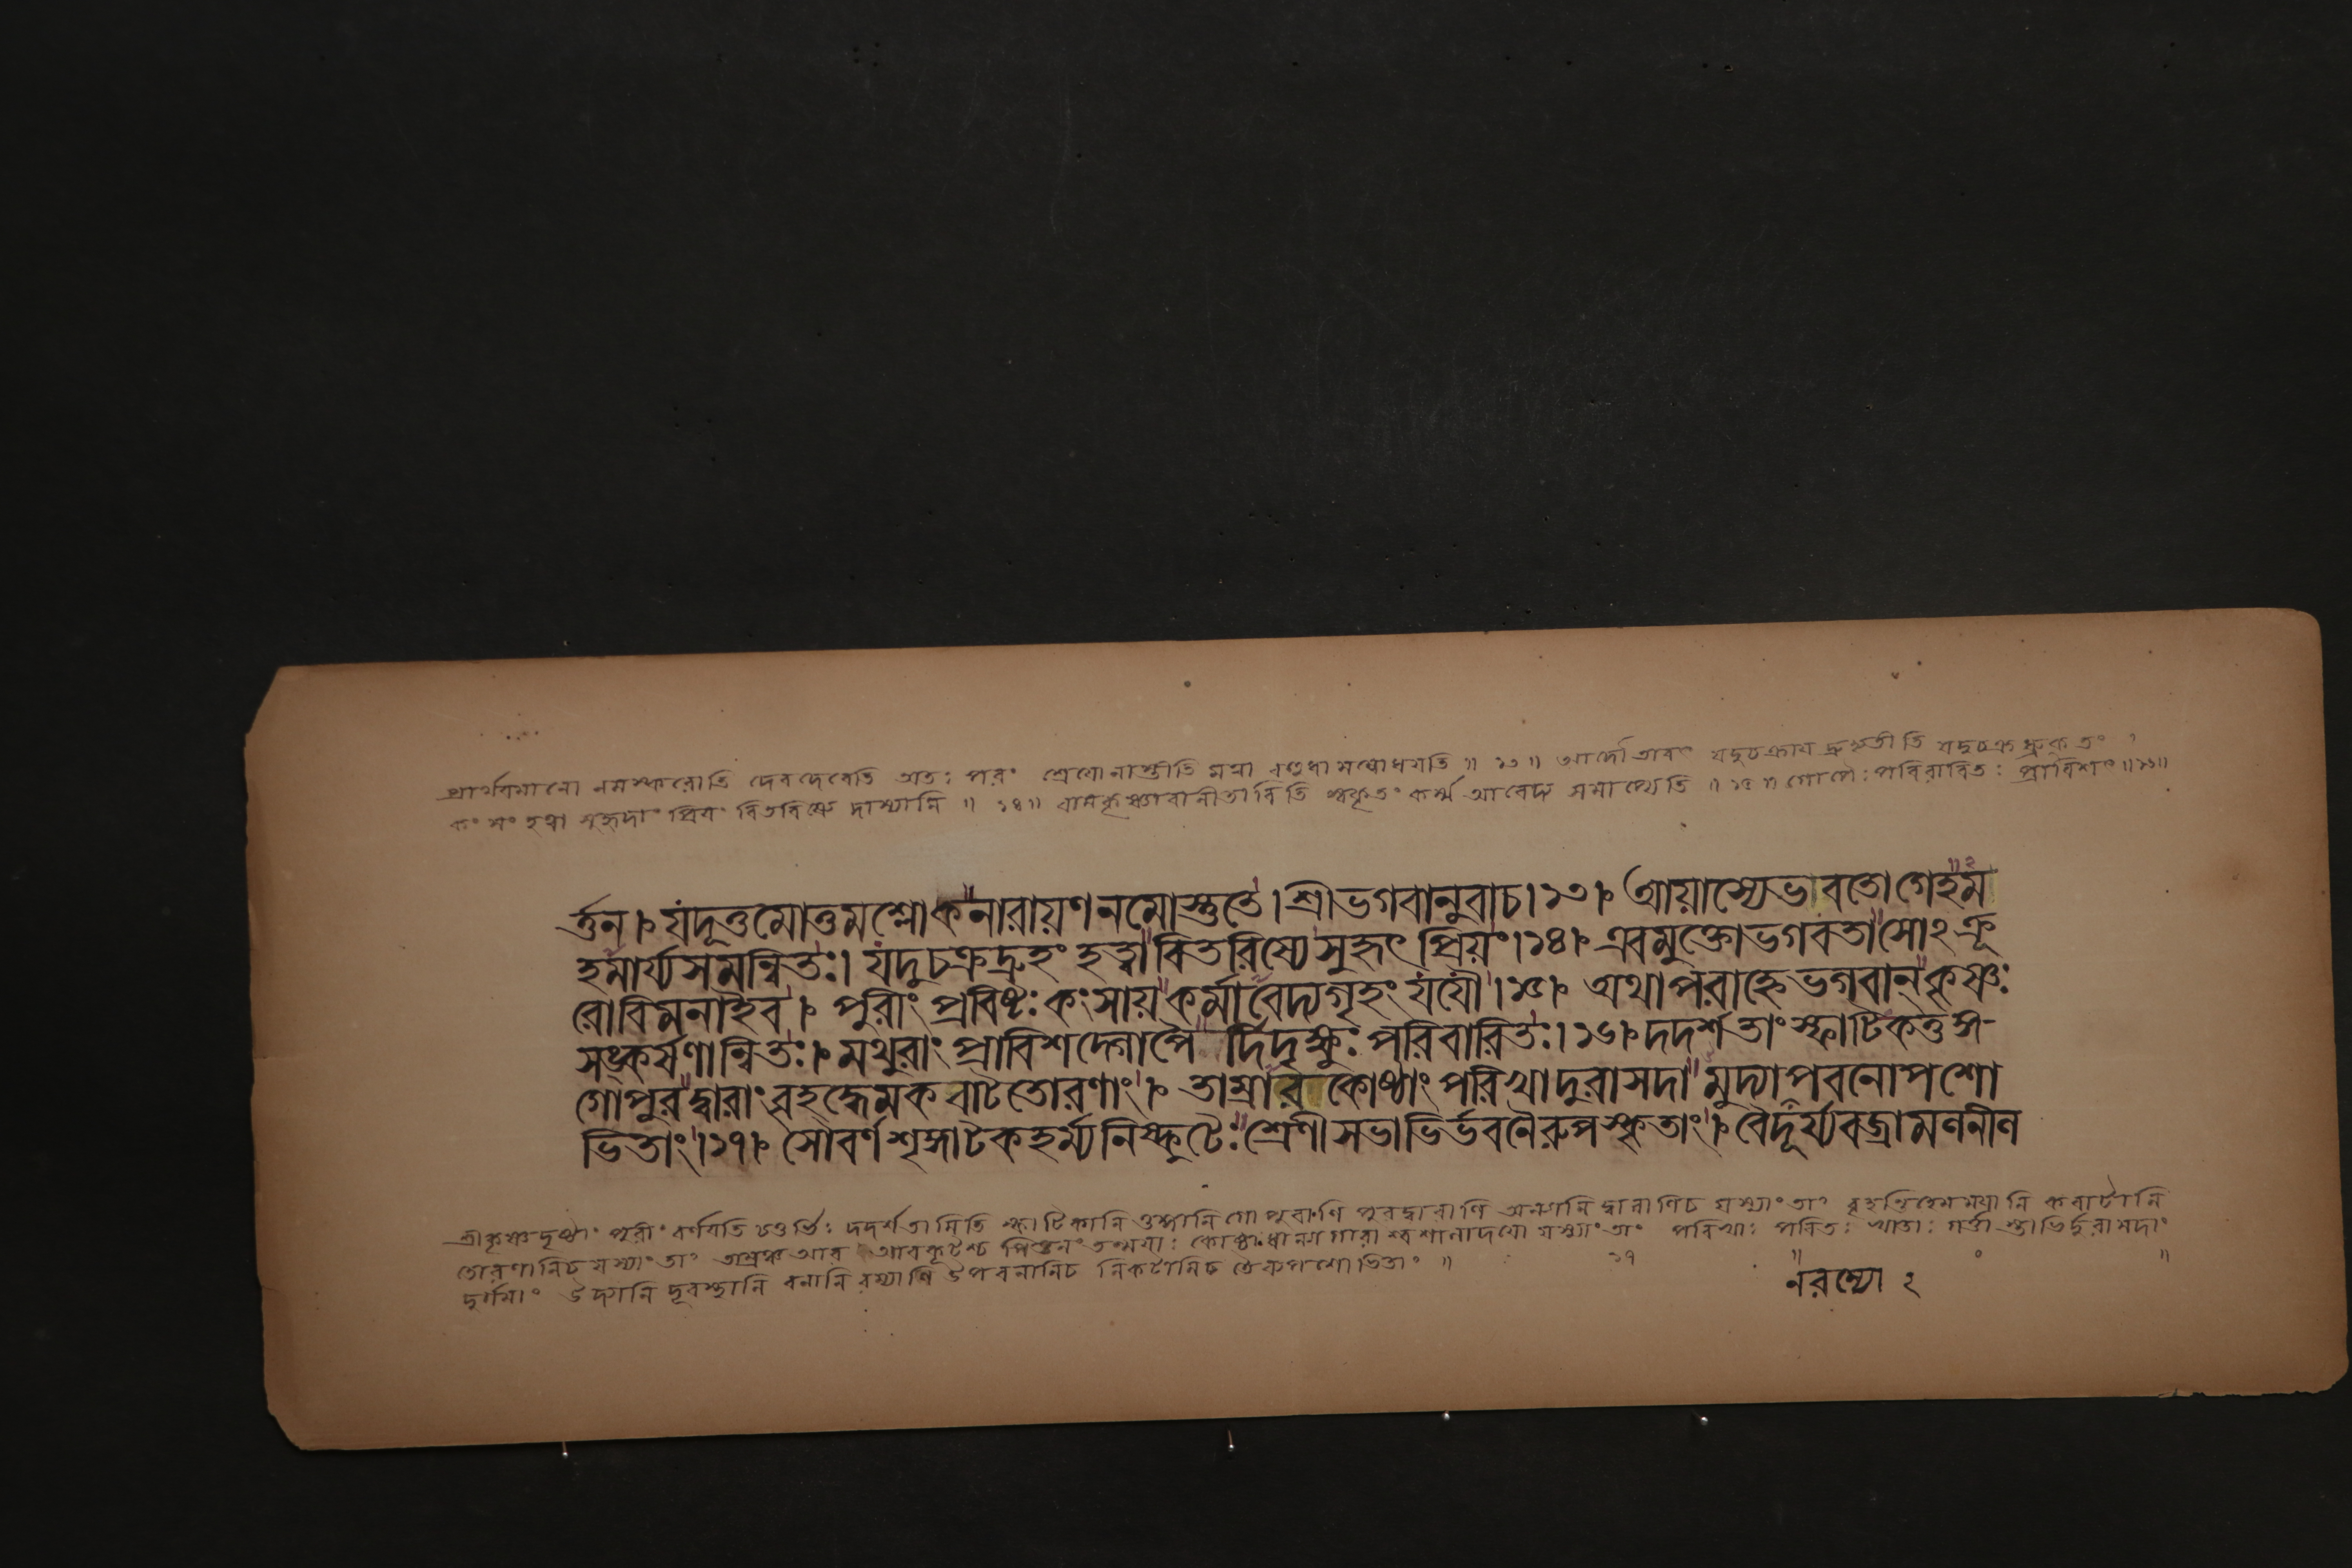 প্রার্থযমানো নমস্করোতি দেবদেবেতি অতঃ পরং শ্রেযোনাস্তীতি মত্বা বহুধা সম্বোধযতি ॥ ১৩ ॥ আদৌ তাবৎ যদুচক্রায দ্রুহ্যতীতি যদুচক্রধ্রুক্ তং
কংসং হত্বা সুহৃদাং প্রিযং বিতরিষ্যে দাস্যামি ॥ ১৪ ॥ রামকৃষ্ণাবানীতাবিতি স্বকৃতং কর্ম্ম আবেদ্য সমাপ্যেতি ॥ ১৫ ॥ গোপৈঃ পরিবারিতঃ প্রাবিশৎ ॥ ১৬ ॥
র্ত্তন। যদূত্তমোত্তমশ্লোকনারায়ণনমোস্তুতে। শ্রীভগবানুবাচ। ১৩। আয়াস্যেভাবতোগেহম
হমার্য্যসমন্বিতঃ। যদুচক্রদ্রুহং হত্বাবিতরিষ্যেসুহৃৎ প্রিয়ং। ১৪। এবমুক্তোভগবতাসোঽক্রূ
রোবিমনাইব। পুরীং প্রবিষ্টঃ কংসায়কর্মাবেদ্যগৃহং যযৌ। ১৫। অথাপরাহ্নেভগবান্ কৃষ্ণঃ
সঙ্কর্ষণান্বিতঃ। মথুরাং প্রাবিশদ্গোপৈ র্দিদৃক্ষুঃ পরিবারিতঃ। ১৬। দদর্শতাং স্ফাটিকতুঙ্গ-
গোপুরদ্বারাং বৃহদ্ধেমকবাটতোরণাং। তাম্রারকোষ্ঠাং পরিখাদুরাসদা মুদ্যাপবনোপশো
ভিতাং। ১৭। সৌবর্ণশৃঙ্গাটকহর্ম্ম্যনিষ্কুটৈঃ শ্রেণীসভাভির্ভবনৈরুপস্কৃতাং। বৈদূর্য্যবজ্রামণনীণ
শ্রীকৃষ্ণদৃষ্টাং পুরীং বর্ণযতি চতুর্ভিঃ দদর্শতামিতি স্ফাটিকানি তুঙ্গানি গোপুরাণি পুরদ্বারাণি অন্যানি দ্বারাণিচ যস্যাং তাং বৃহন্তিহেমমযানি কবাটানি
তোরণানিচ যস্যাং তাং তাম্রঞ্চ আর আরকূটশ্চ পিত্তলং তন্মযাঃ কোষ্ঠাঃ ধান্যাগারাশ্বশালাদযো যস্যাং তাং পরিখাঃ পরিতঃ খাতাঃ গর্ত্তাস্তাভির্দুরাসদাং
দুর্গমাং উদ্যানি দূরস্থানি বনানি রম্যাণি উপবনানিচ নিকটানিচ তৈরুপশোভিতাং ॥ ১৭ ॥
নরম্যো ২